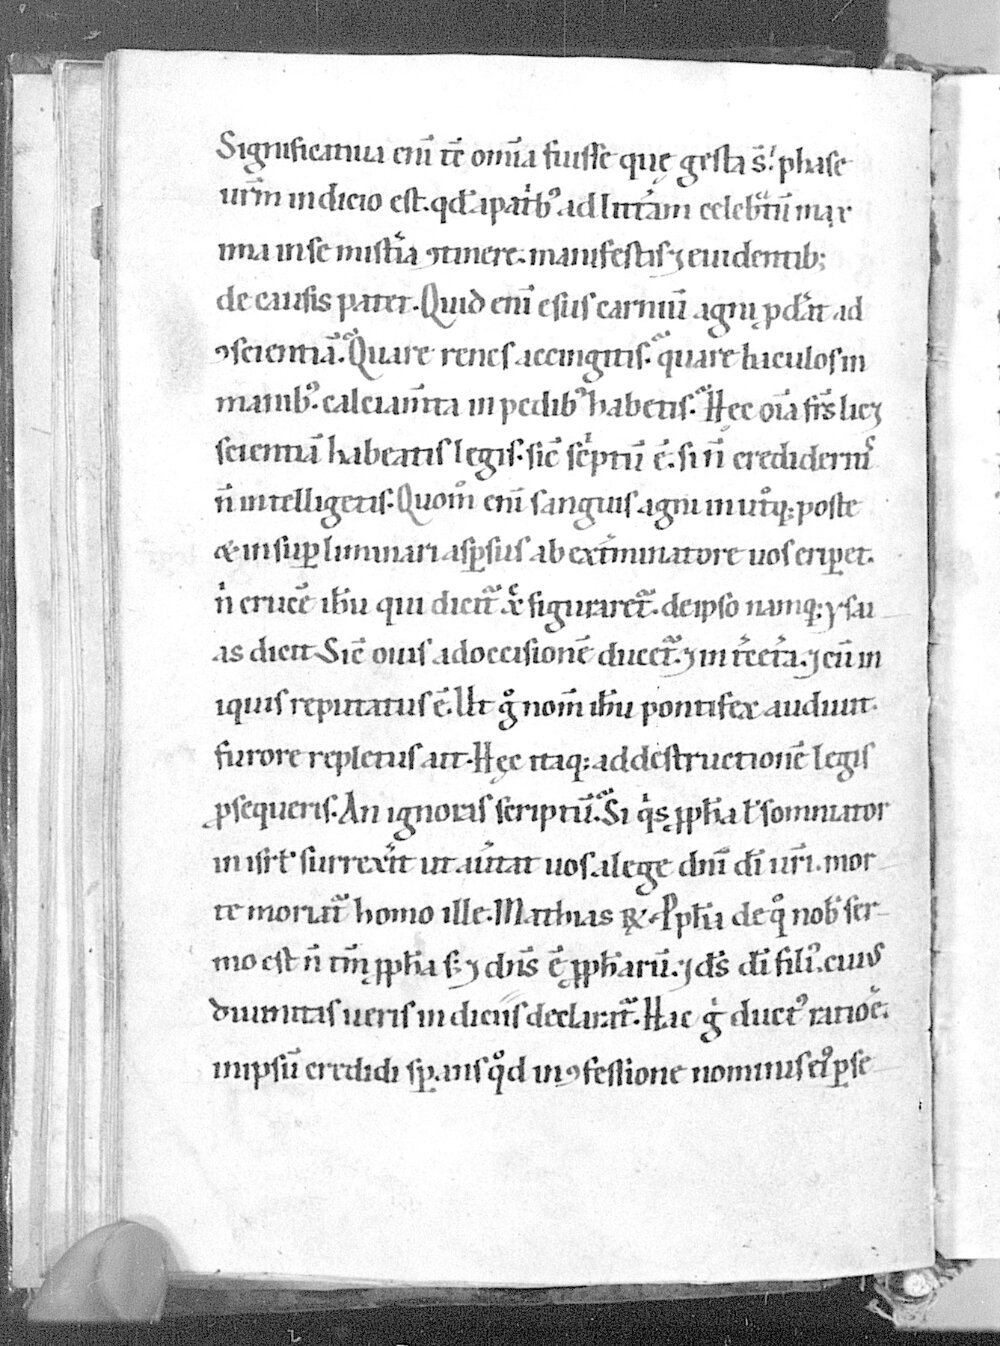 Significatiua eni̅ te̅ om̅ia fuisse quę gesta s̅t phase
ur̅m indicio est. qd̅ a patͥbꝰ ad litt̅am celebᵃtu̅ max
ima in se mist̅ia ꝯtinere. manifestis ⁊ euidentib;
de causis patet. Quid eni̅ esus carniu̅ agni ꝓd̅at ad
ꝯscientia̅. Quare renes accingitis. quare baculos in
manibꝰ. calciam̅ta in pedibꝰ habetis. Hęc oi̅a fr̅s licꝫ
scientia̅ habeatis legis. sic̅ scͥptu̅ e̅. si n̅ credideritͥs
n̅ intelligetis. Quom̊ eni̅ sanguis agni in utͦqꝫ poste
& in suꝑliminari asꝑsus ab ext̅minatore uos eriꝑet.
nͥ cruce̅ ih̅u qui dicit᷑ xp̅c figuraret᷑. de ipso namqꝫ ysai
as dicit Sic̅ ouis ad occisione̅ ducet᷑. ⁊ in t̅ cet̅a. ⁊ cu̅ in
iquis reputatus e̅. Ut gͦ nom̅ ih̅u pontifex audiuit.
furore repletus ait. Hęc itaqꝫ ad destructione̅ legis
ꝑsequeris. An ignoras scriptu̅. Si qͥs ꝓph̅a uł somniator
in isrł surrex̅it ut au̅tat uos a lege dn̅i di̅ ur̅i. mor
te moriat᷑ homo ille. Mathias R̷. Ꝓph̅a de qͦ nob̅ ser
mo est n̅ tm̅ ꝓph̅a s; ⁊ dn̅s e̅ ꝓph̅aru̅. ⁊ ds̅ di̅ filiꝰ. cuius
diuinitas ueris indiciis declarat᷑. Hac gͥ ductꝰ ratio̅e.
in ipsu̅ credidi sꝑans qͦd in ꝯfessione nominis eiꝰ ꝑse